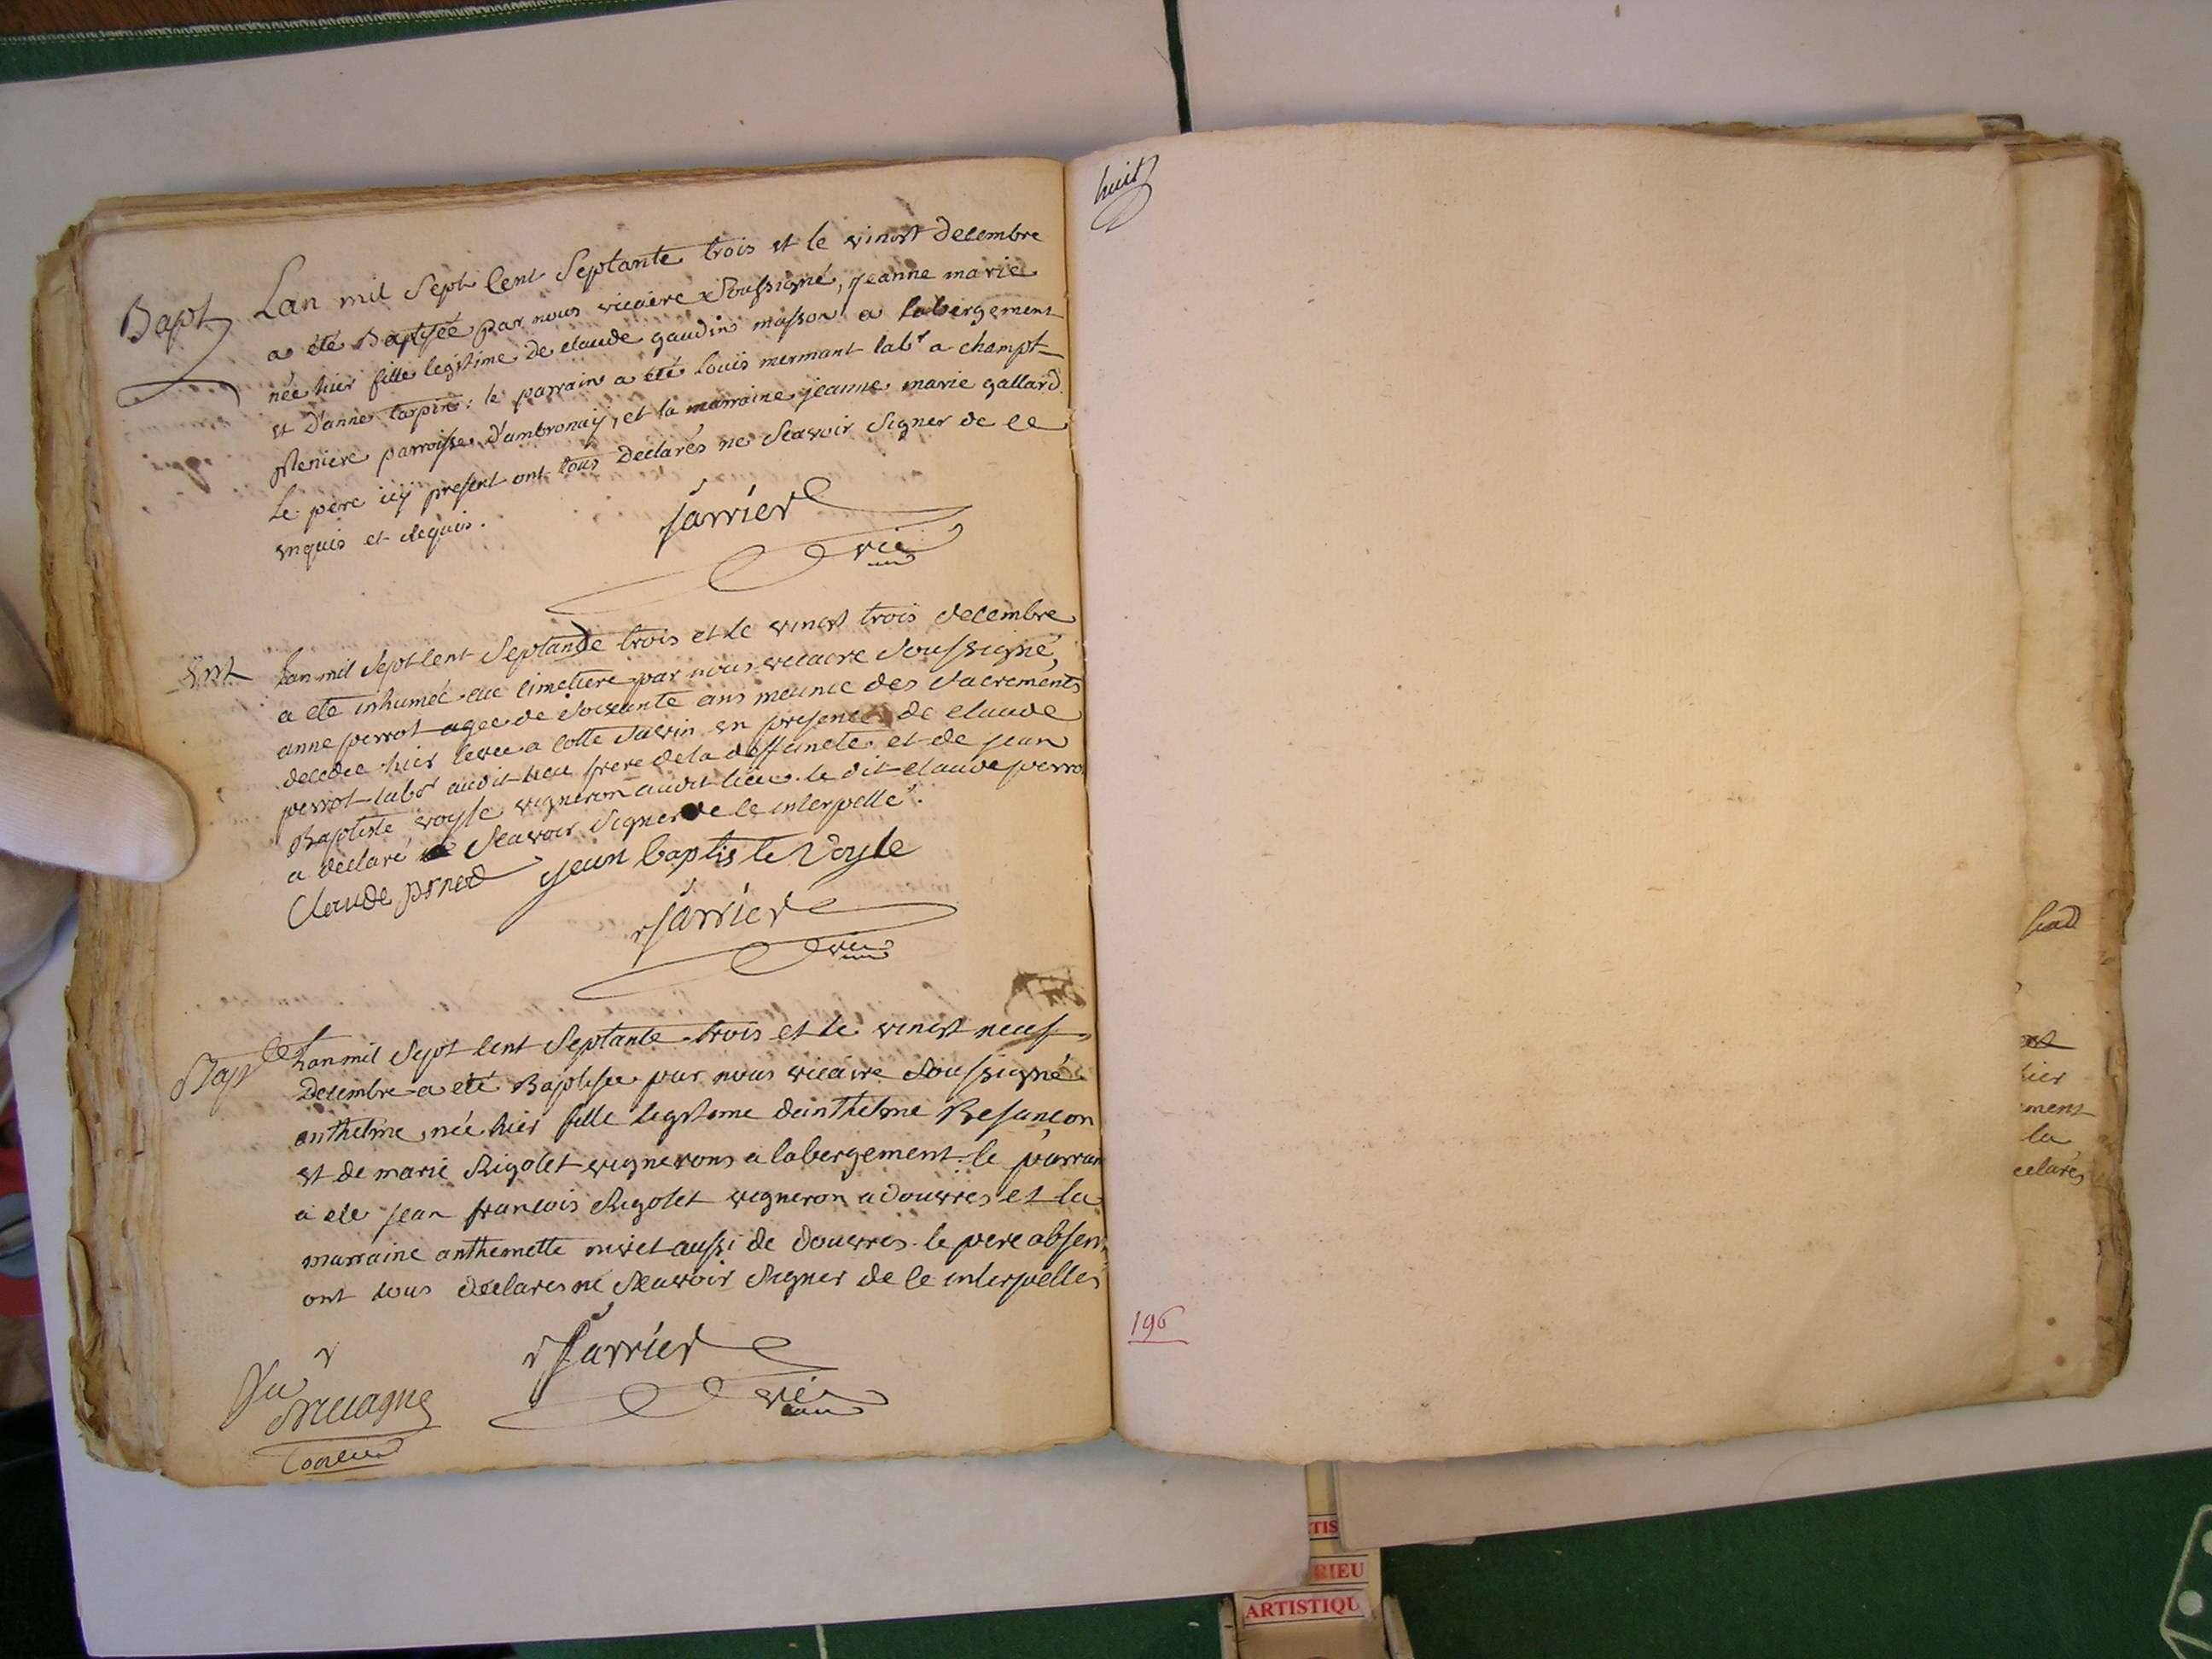 Bapt
Lan mil Sept Cent Septante trois et le vingt decembre
a été Baptisée par nous vicaire Soussigné, jeanne marie
née hier fille legitime de claude gaudin masson a labergement
et d'anne tarpin : le parrain a été louis mermant labr a champt-
parroisse d'ambronaij, et la marraine jeanne marie gallard
Le pere icy present ont tous declarés ne Scavoir Signer de ce
enquis et requis.
Jarrier
vic
Lan mil Sept Cent Septante trois et le vingt trois decembre
a été inhumée au Cimetiere par nous vicaire Soussigné,
anne perrot agée de Soixante ans meunie des Sacrements
decedée hier levée a Cotte Savin en presence de claude
perrot labr audit lieu frere de la deffuncte et de jean
Baptiste voyle vigneron audit lieu. le dit claude perrot
a declaré Scavoir Signer de ce interpellé.
Claude jean baptiste Voyle
Jarrier
vic
Bap
Lan mil Sept Cent Septante trois et le vingt neuf
Decembre a été Baptisée par nous vicaire Soussigné
anthelme née hier fille legitime d'anthelme Besançon
et de marie Rigolet vignerons a labergement. le parrain
a été jean francois Rigolet vigneron a douvres et la
marraine anthemette nivet aussi de douvres. le pere absen
ont tous declarés ne Scavoir Signer de ce interpellés
Jarrier
vic
Vu
huit
196
hier
ment
la
eclarés
TIS
RIEU
ARTISTIQU